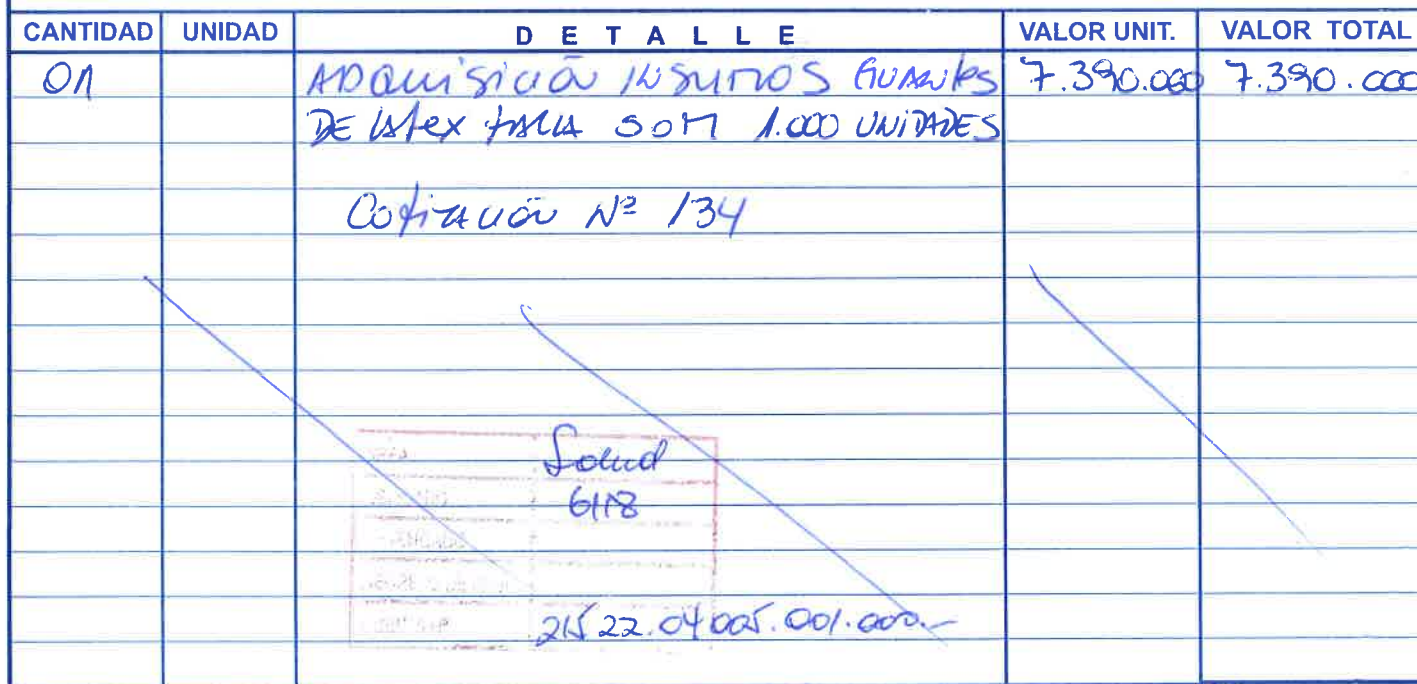 CANTIDAD UNIDAD DETALLE VALOR UNIT. VALOR TOTAL
01 ADQUISICIÓN INSUMOS GUANTES 7.390.000 7.390.000
DE latex TALLA S O M 1.000 UNIDADES
Cotización Nº 134
Salud
6118
215 22.04 005.001.000.-